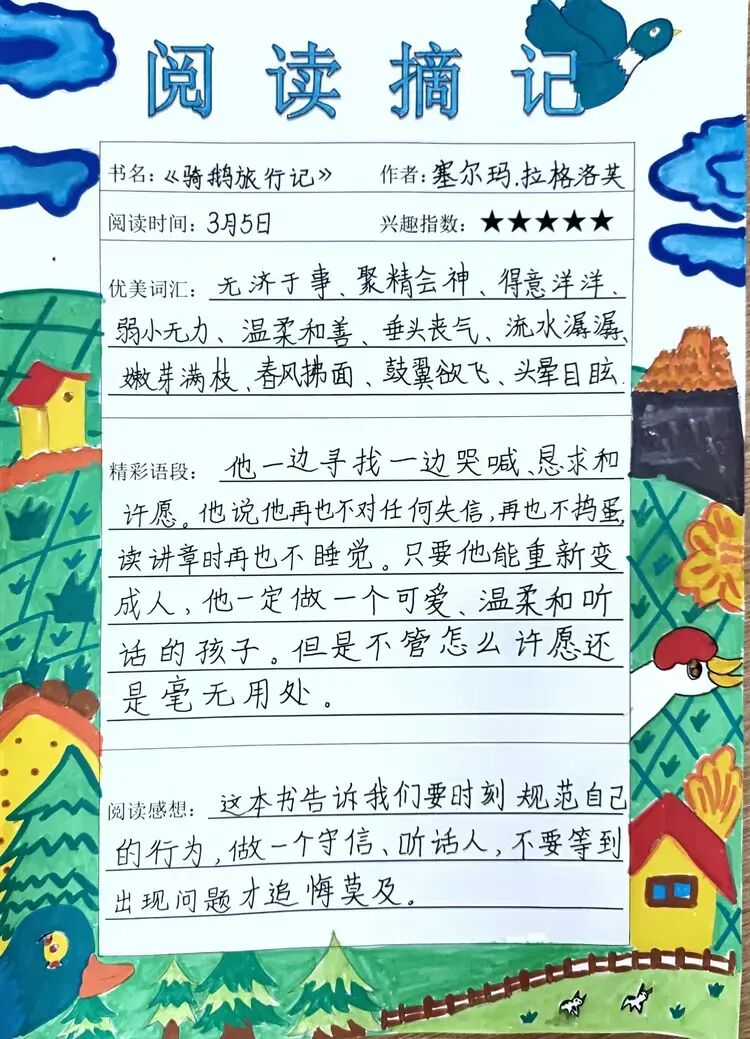 阅读摘记
书名：《骑鹅旅行记》 作者：塞尔玛.拉格洛芙
阅读时间：3月5日 兴趣指数：★★★★★
优美词汇：无济于事、聚精会神、得意洋洋、
弱小无力、温柔和善、垂头丧气、流水潺潺、
嫩芽满枝、春风拂面、鼓翼欲飞、头晕目眩.
精彩语段：他一边寻找一边哭喊、恳求和
许愿。他说他再也不对任何失信,再也不捣蛋,
读讲章时再也不睡觉。只要他能重新变
成人，他一定做一个可爱、温柔和听
话的孩子。但是不管怎么许愿还
是毫无用处。
阅读感想：这本书告诉我们要时刻规范自己
的行为,做一个守信、听话人,不要等到
出现问题才追悔莫及。